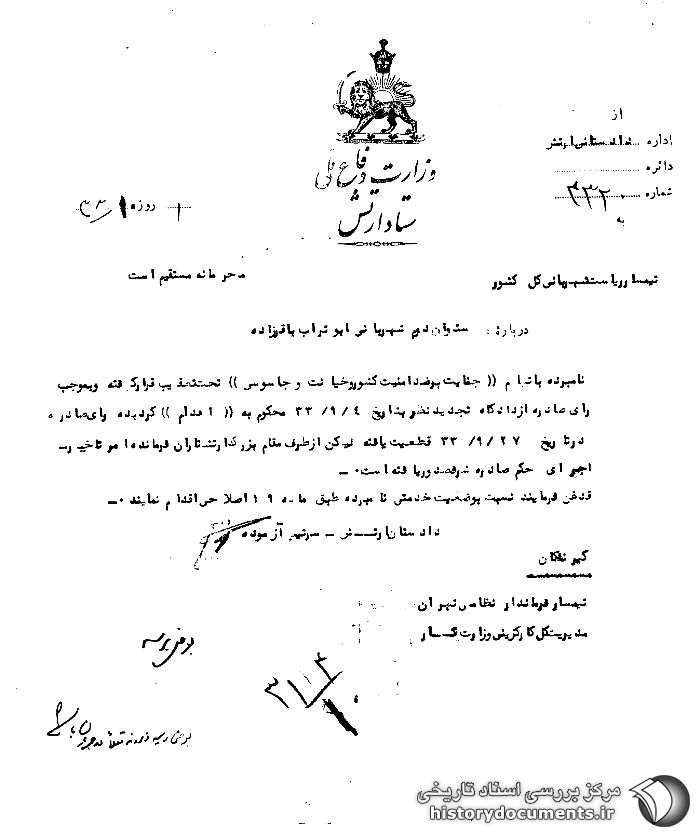 از
اداره دادستانی ارتش
دائره
شماره ۴۳۲
به
وزارت دفاع ملی
ستاد ارتش
روزه ۱
محرمانه مستقیم است
تیمسار ریاست شهربانی کل کشور
درباره : ستوان دوم شهربانی ابوتراب باقرزاده
نامبرده باتهام (( جنایت برضد امنیت کشور و خیانت و جاسوسی )) تحت تعقیب قرار گرفته و بموجب
رای صادره از دادگاه تجدید نظر بتاریخ ۳۳/۹/۴ محکوم به (( اعدام )) گردیده رای صادره
در تاریخ ۳۳/۹/۲۷ قطعیت یافته لیکن از طرف مقام بزرگ ارتشتاران فرمانده امر تاخیر
اجرای حکم صادره شرفصدور یافته است ۰ ــ
قدغن فرمایند نسبت بوضعیت خدمتی نامبرده طبق ماده ۱۹ اصلاحی اقدام نمایند ۰ ــ
دادستان ارتش ــ سرتیپ آزموده
گیرندگان
تیمسار فرماندار نظامی تهران
مدیریت کل کارگزینی وزارت کشور
بعرض برسد
۳۱/۴
مرکز بررسی اسناد تاریخی
historydocuments.ir